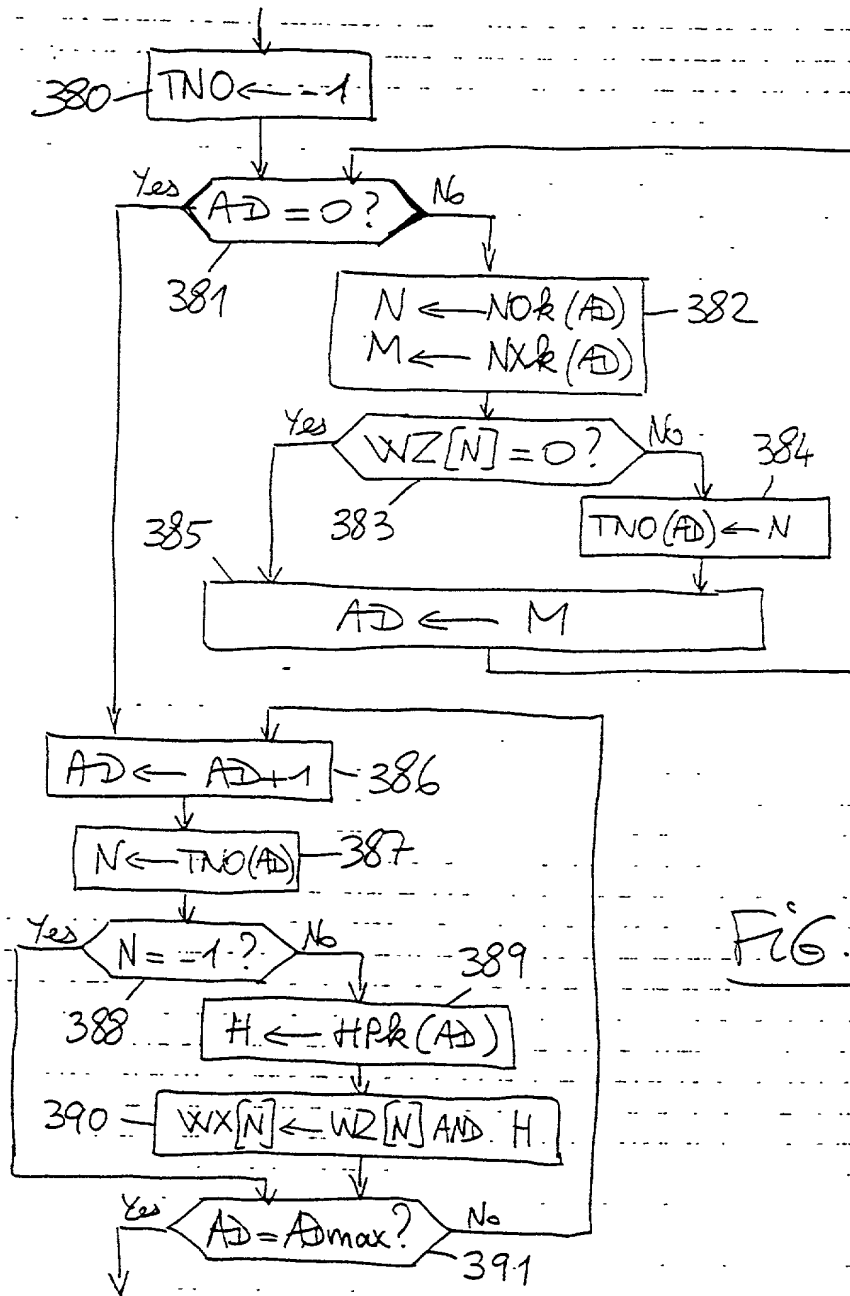 380 TNO ← -1
Yes AD = 0? No
381
N ← NOk(AD) 382
M ← NXk(AD)
Yes WZ[N] = 0? No 384
383 TNO(AD) ← N
385
AD ← M
AD ← AD+1 386
N ← TNO(AD) 387
Yes N = -1? No
388 389
H ← HPk(AD)
390 WX[N] ← WZ[N] AND H
Yes AD = ADmax? No
391
FiG.